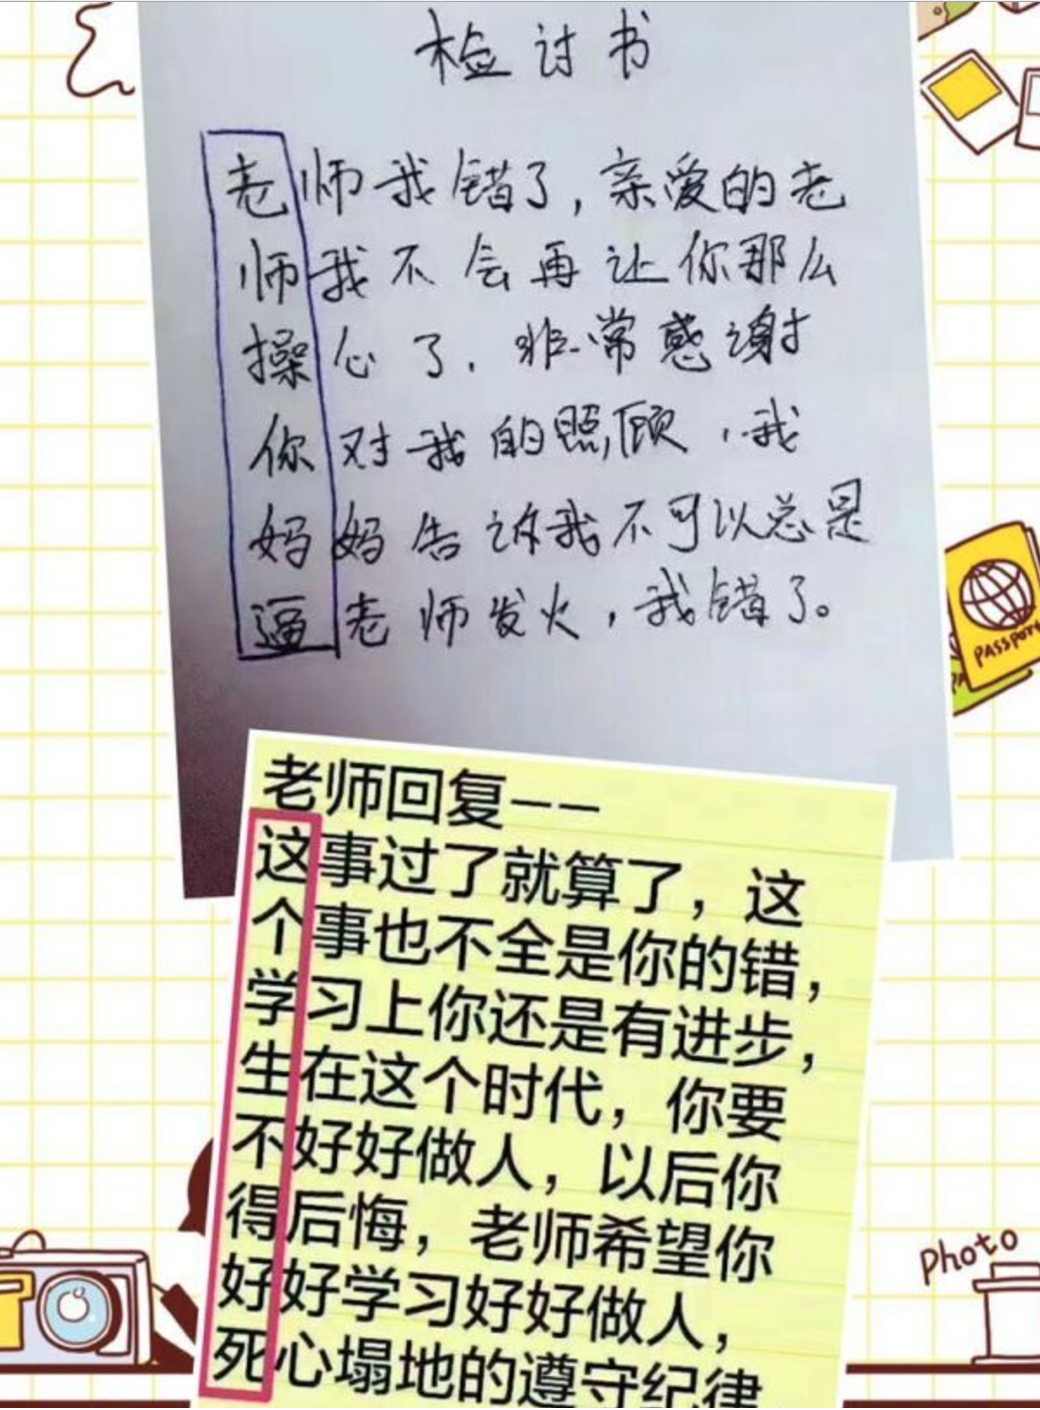 检讨书
老师我错了，亲爱的老
师我不会再让你那么
操心了．非常感谢
你对我的照顾，我
妈妈告诉我不可以总是
逼老师发火，我错了。
老师回复——
这事过了就算了，这
个事也不全是你的错，
学习上你还是有进步，
生在这个时代，你要
不好好做人，以后你
得后悔，老师希望你
好好学习好好做人，
死心塌地的遵守纪律
PASSPORT
Photo